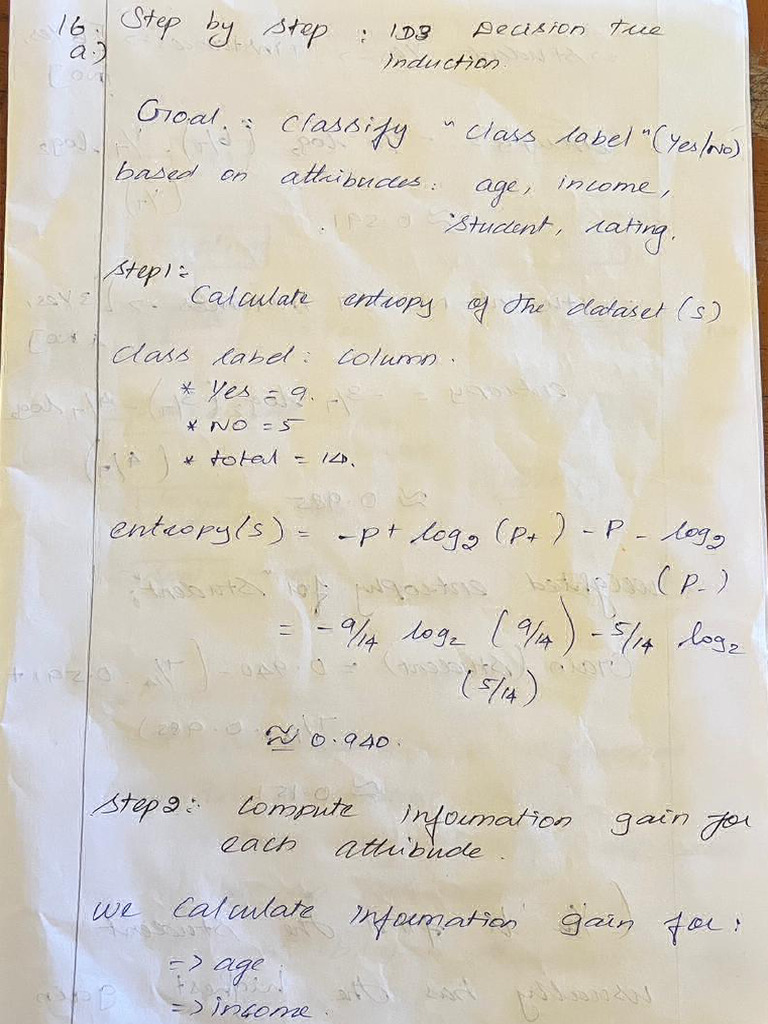 16. Step by step : ID3 Decision tree
a.) induction.
Goal : classify "class label" (Yes/No)
based on attribudes : age, income,
student, rating.
Step1:
Calculate entropy of the dataset (s)
class label : column.
* Yes = 9.
* NO = 5
* total = 14.
entropy(s) = -P+ log2 (P+) - P- log2
(P-)
= -9/14 log2 (9/14) - 5/14 log2
(5/14)
≈ 0.940.
Step2: compute information gain for
each attribude.
we calculate information gain for :
=> age
=> income.